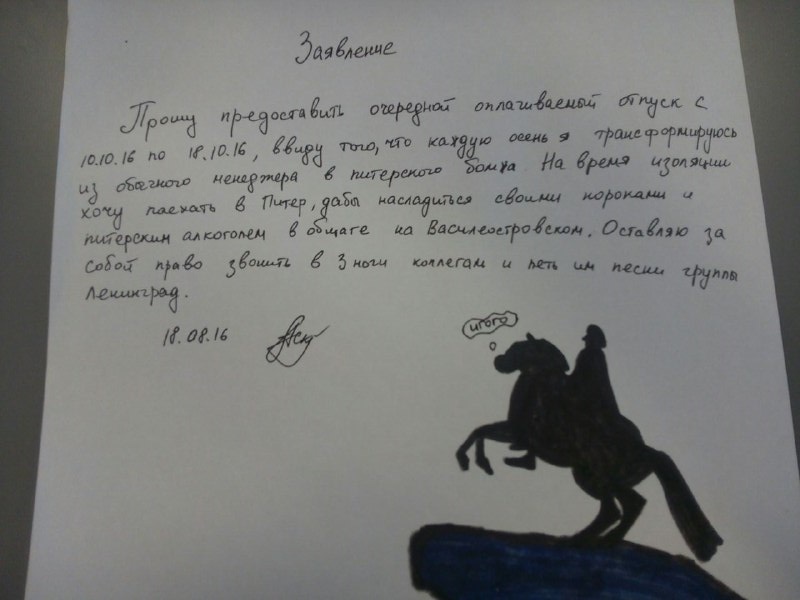 Заявление
Прошу предоставить очередной оплачиваемый отпуск с
10.10.16 по 18.10.16, ввиду того, что каждую осень я трансформируюсь
из обычного менеджера в питерского бомжа. На время изоляции
хочу поехать в Питер, дабы насладиться своими пороками и
питерским алкоголем в общаге на Василеостровском. Оставляю за
собой право звонить в 3 ночи коллегам и петь им песни группы
Ленинград.
18.08.16
игого